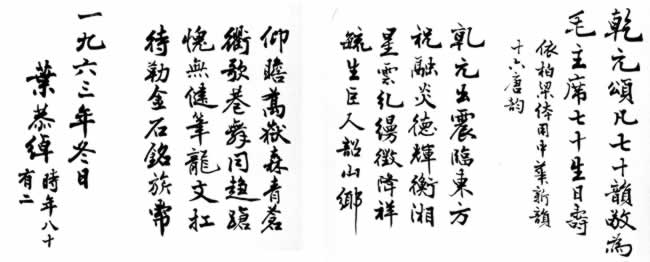 乾元頌凡七十韻敬為
毛主席七十生日壽
依柏梁体用中華新韻
十六唐韵
乾元出震臨東方
祝融炎德輝衡湘
星雲糺縵徵降祥
毓生巨人韶山鄉
仰瞻萬嶽森青蒼
衢歌巷舞同趨蹌
愧無健筆龍文扛
待勒金石銘旂常
一九六三年冬日
葉恭綽時年八十
有二